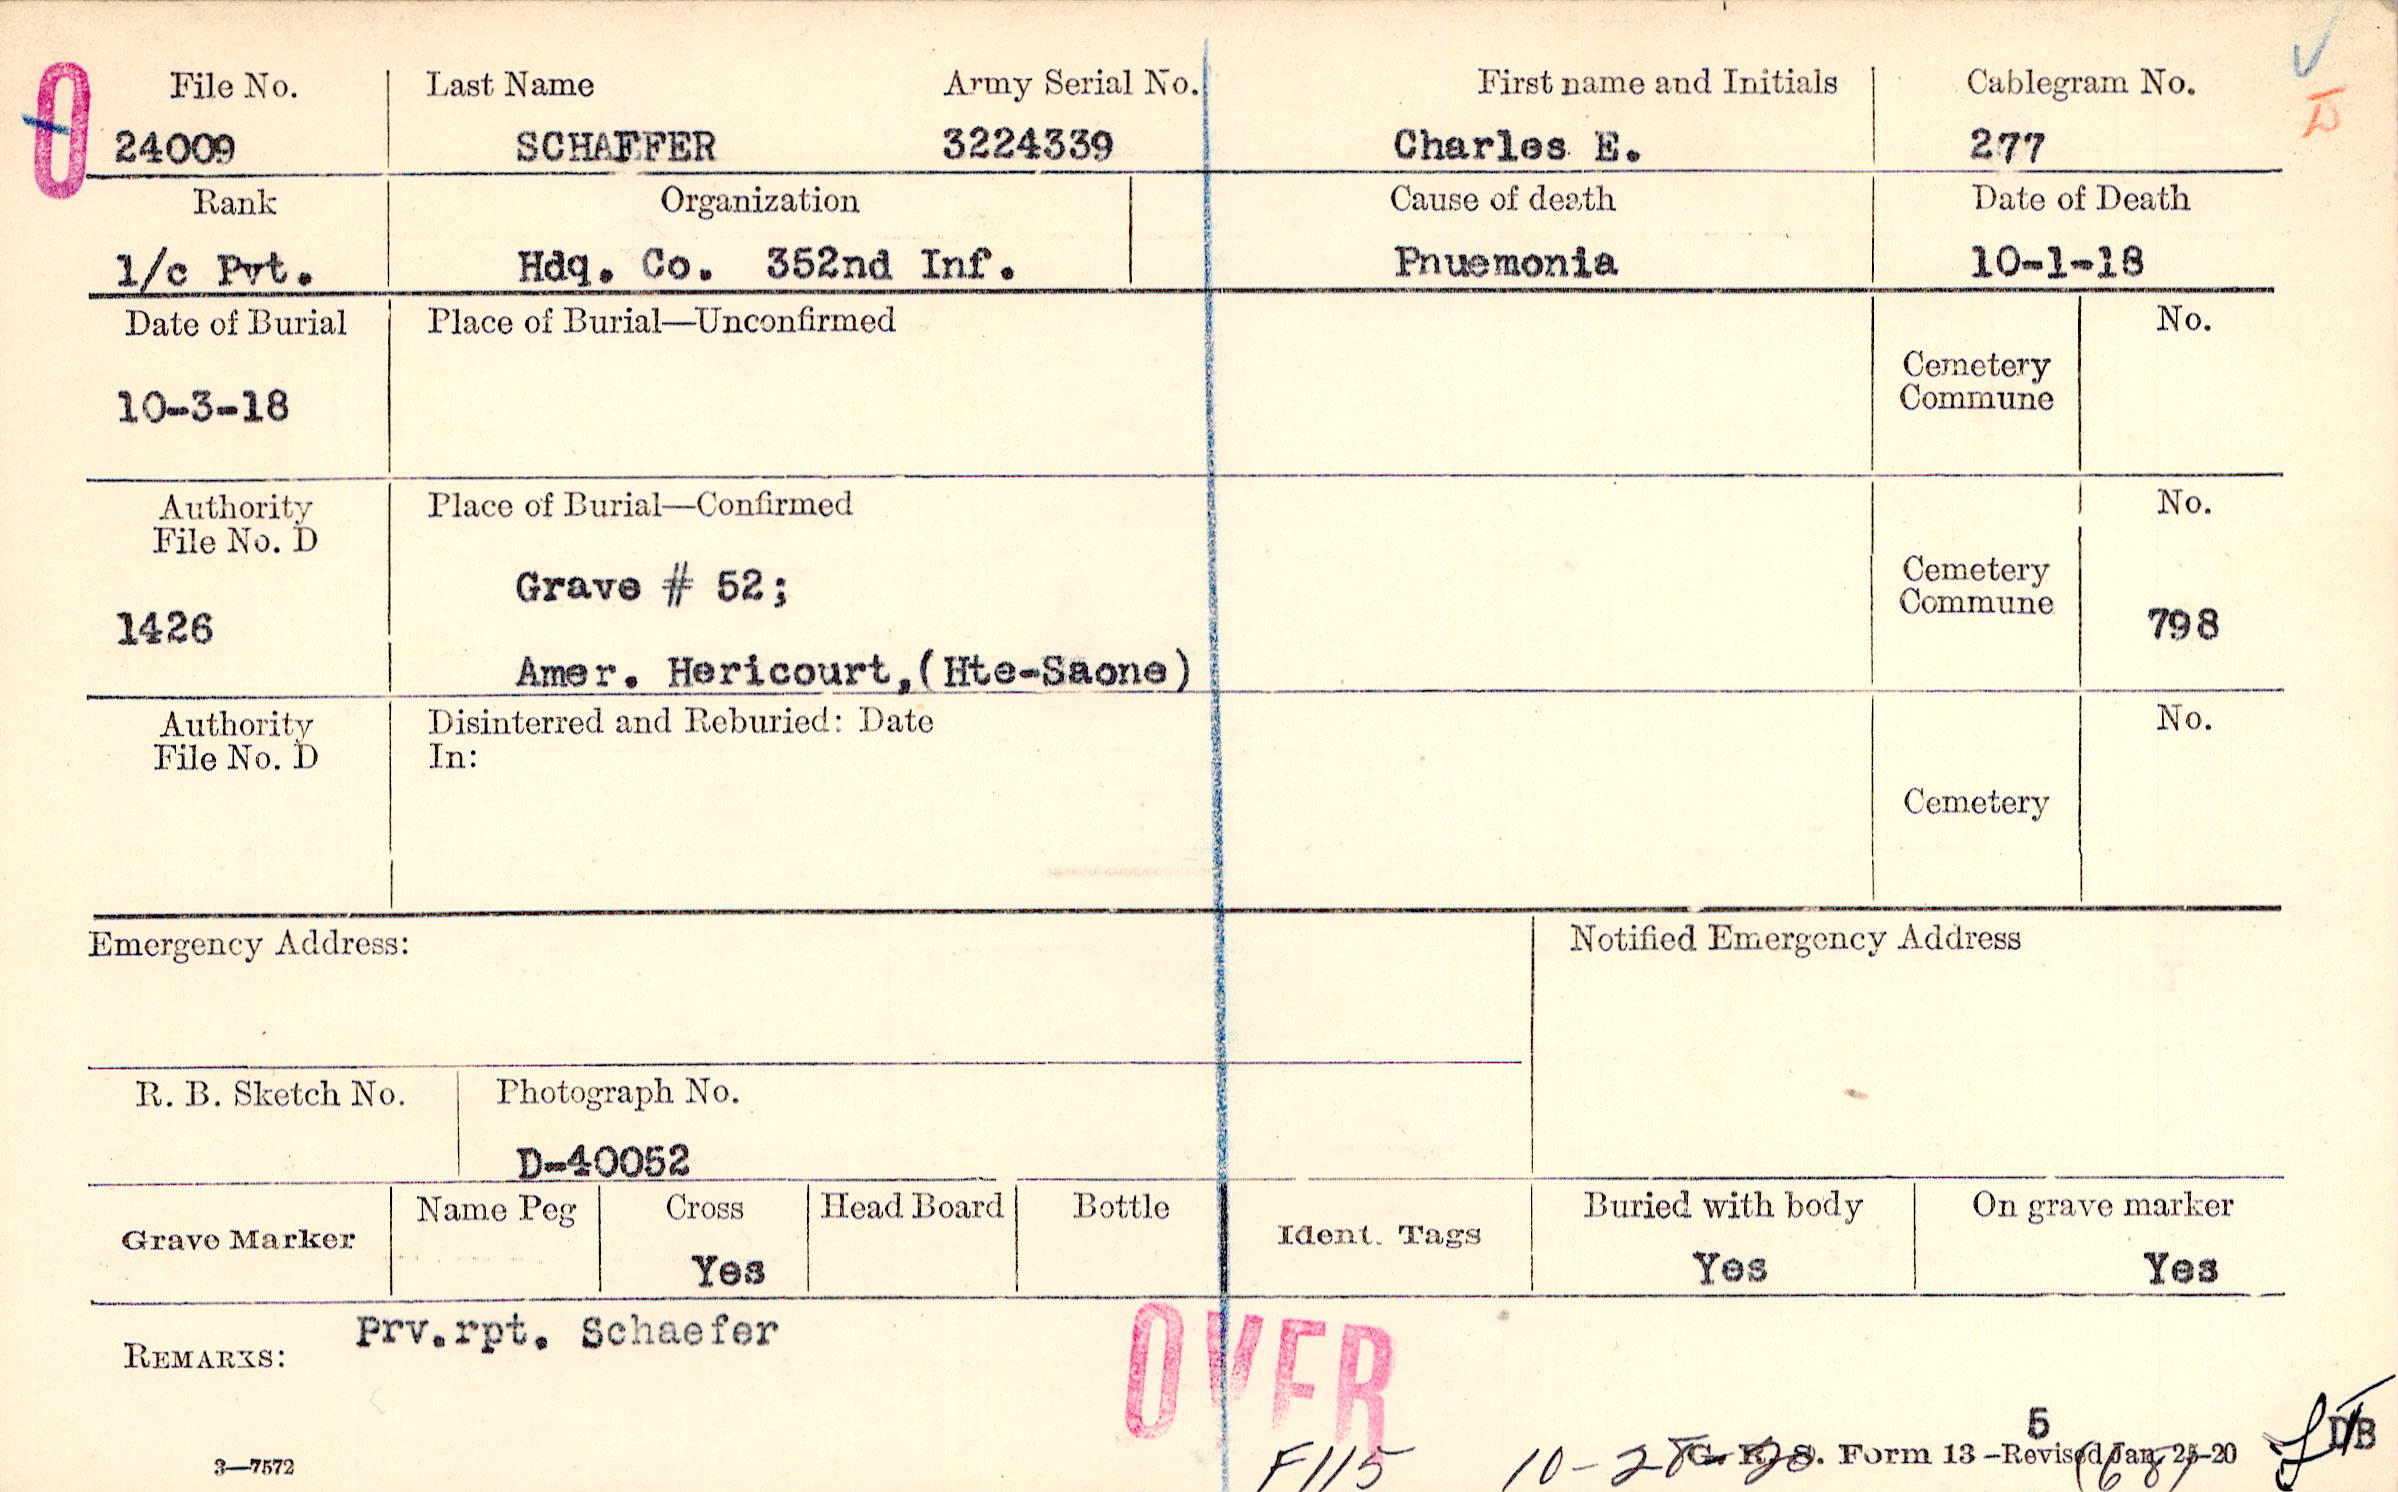 O
File No. Last Name Army Serial No. First name and Initials Cablegram No.
24009 SCHAEFFER 3224339 Charles E. 277
Rank Organization Cause of death Date of Death
1/c Pvt. Hdq. Co. 352nd Inf. Pnuemonia 10-1-18
Date of Burial Place of Burial—Unconfirmed No.
Cemetery
Commune
10-3-18
Authority Place of Burial—Confirmed No.
File No. D
Grave # 52; Cemetery
Commune
1426 798
Amer. Hericourt,(Hte-Saone)
Authority Disinterred and Reburied: Date No.
File No. D In:
Cemetery
Emergency Address: Notified Emergency Address
R. B. Sketch No. Photograph No.
D-40052
Grave Marker Name Peg Cross Head Board Bottle Ident. Tags Buried with body On grave marker
Yes Yes Yes
Prv.rpt. Schaefer
REMARKS:
OVER
5
3—7572 F115 10-28-20 G. R. S. Form 13—Revised Jan. 25-20 (68) DB